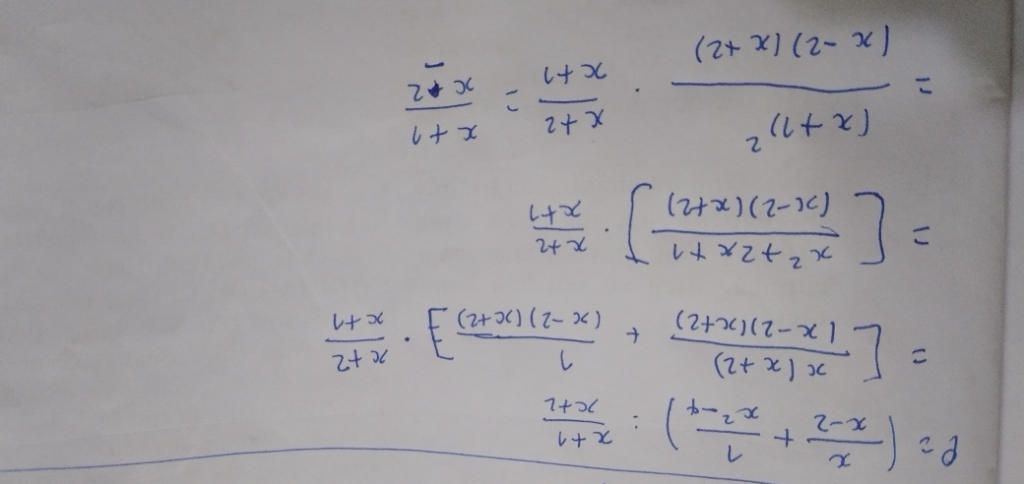 P = ( x/(x-2) + 1/(x²-4) ) : (x+1)/(x+2)
= [ x(x+2)/((x-2)(x+2)) + 1/((x-2)(x+2)) ] · (x+2)/(x+1)
= [ (x²+2x+1)/((x-2)(x+2)) ] · (x+2)/(x+1)
= (x+1)²/((x-2)(x+2)) · (x+2)/(x+1) = (x+1)/(x-2)